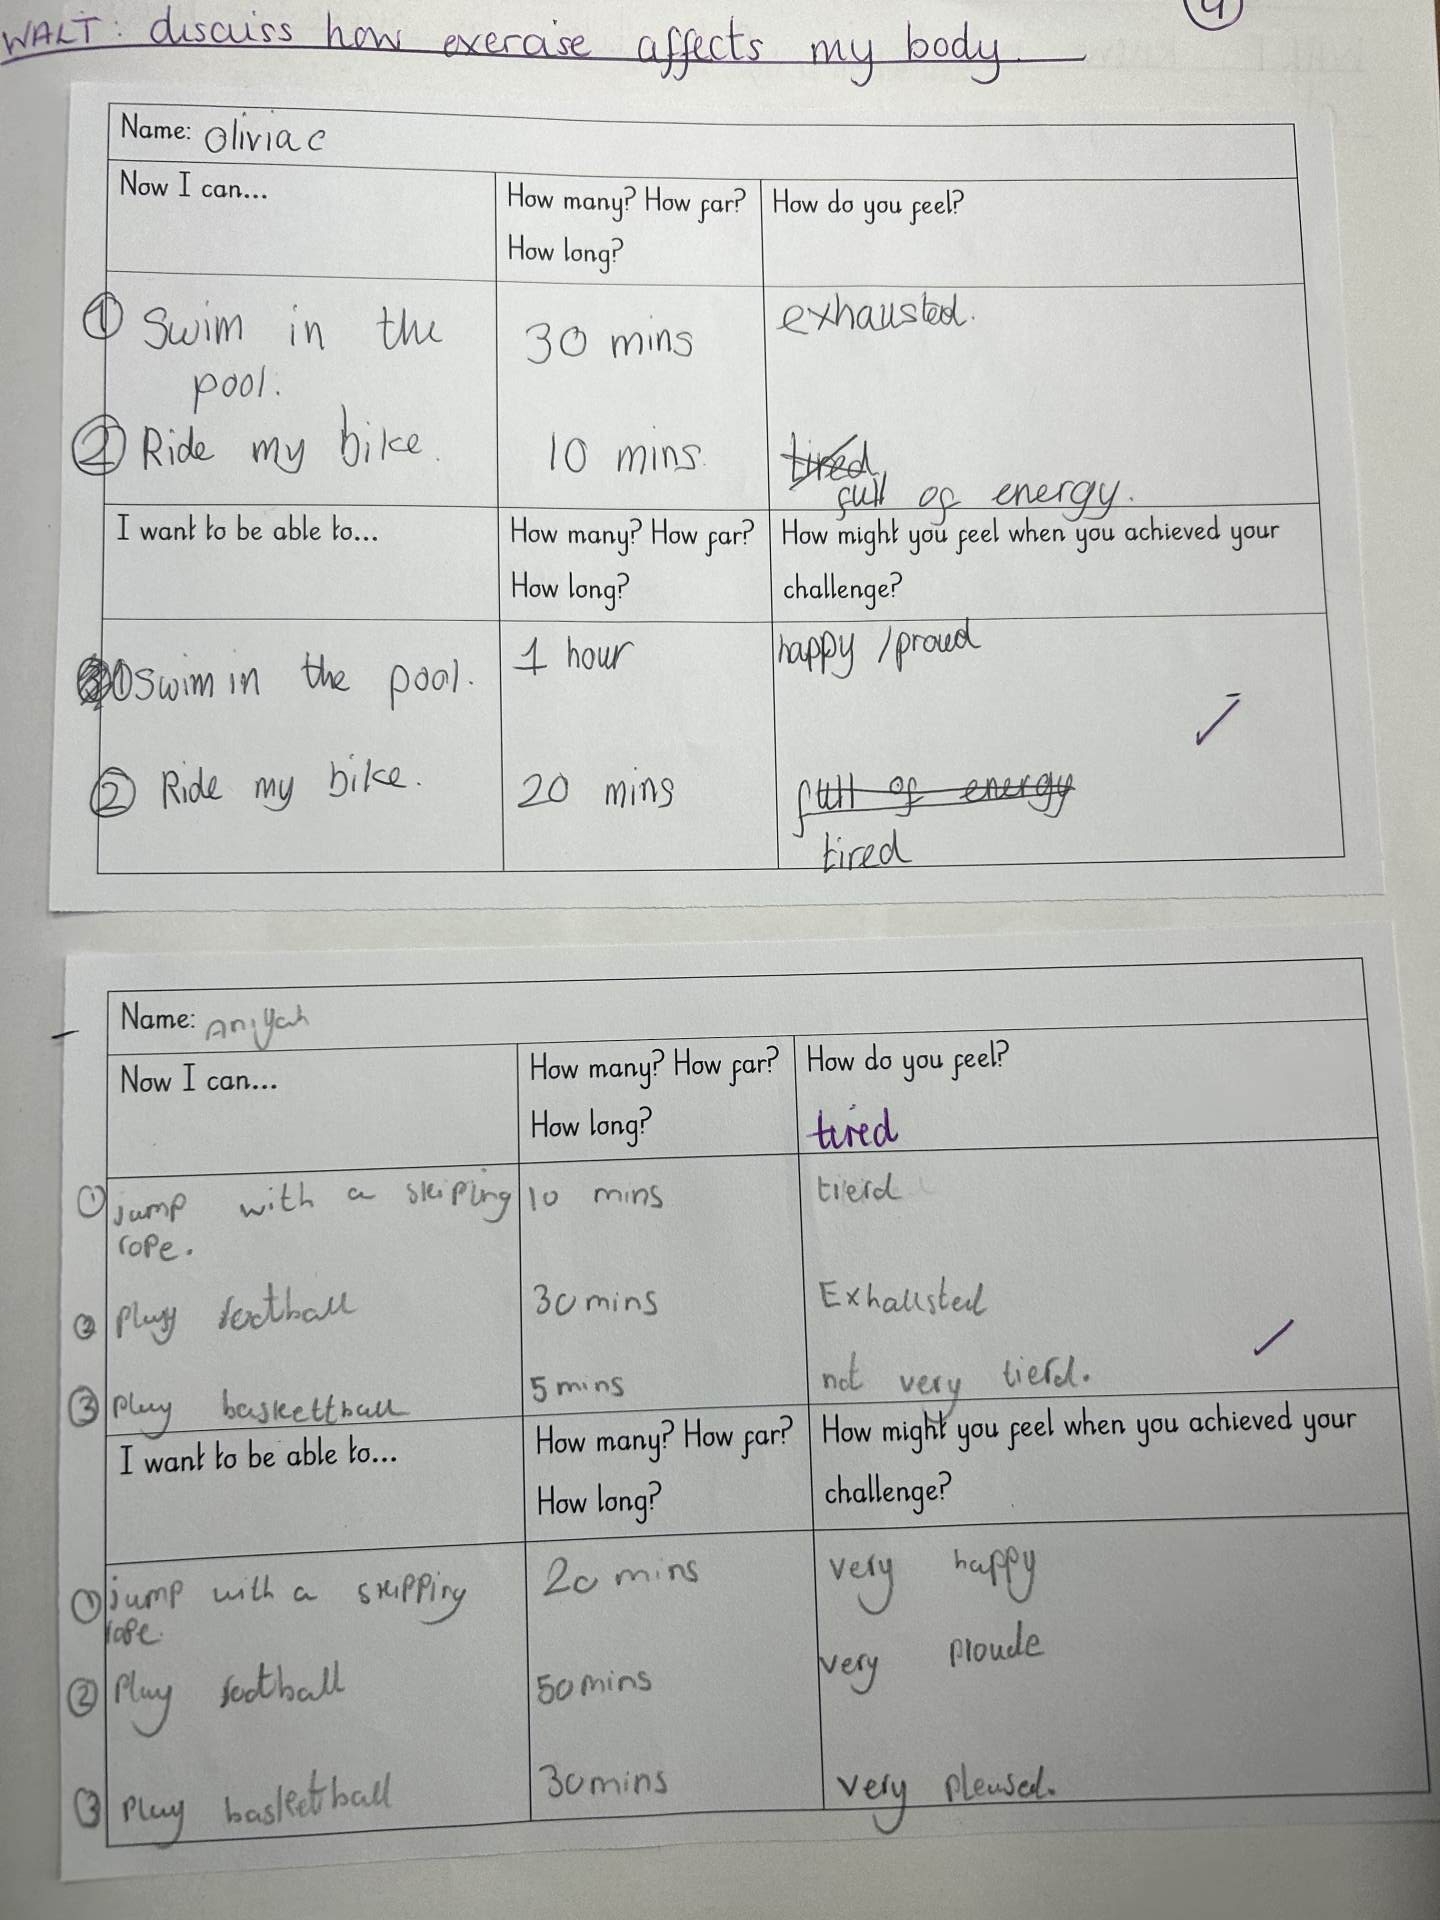 4
WALT: discuss how exercise affects my body.
Name: Olivia c
Now I can...
How many? How far?
How long?
How do you feel?
① Swim in the
pool.
30 mins
exhausted.
② Ride my bike.
10 mins.
tired
full of energy.
I want to be able to...
How many? How far?
How long?
How might you feel when you achieved your
challenge?
① Swim in the pool.
1 hour
happy / proud
② Ride my bike.
20 mins
full of energy
tired
Name: Aniyah
Now I can...
How many? How far?
How long?
How do you feel?
tired
① jump with a skiping
rope.
10 mins
tierd
② Play football
30 mins
Exhausted
③ Play baskettball
5 mins
not very tierd.
I want to be able to...
How many? How far?
How long?
How might you feel when you achieved your
challenge?
① jump with a skipping
rope.
20 mins
very happy
② Play football
50 mins
very proude
③ Play basketball
30 mins
very pleased.